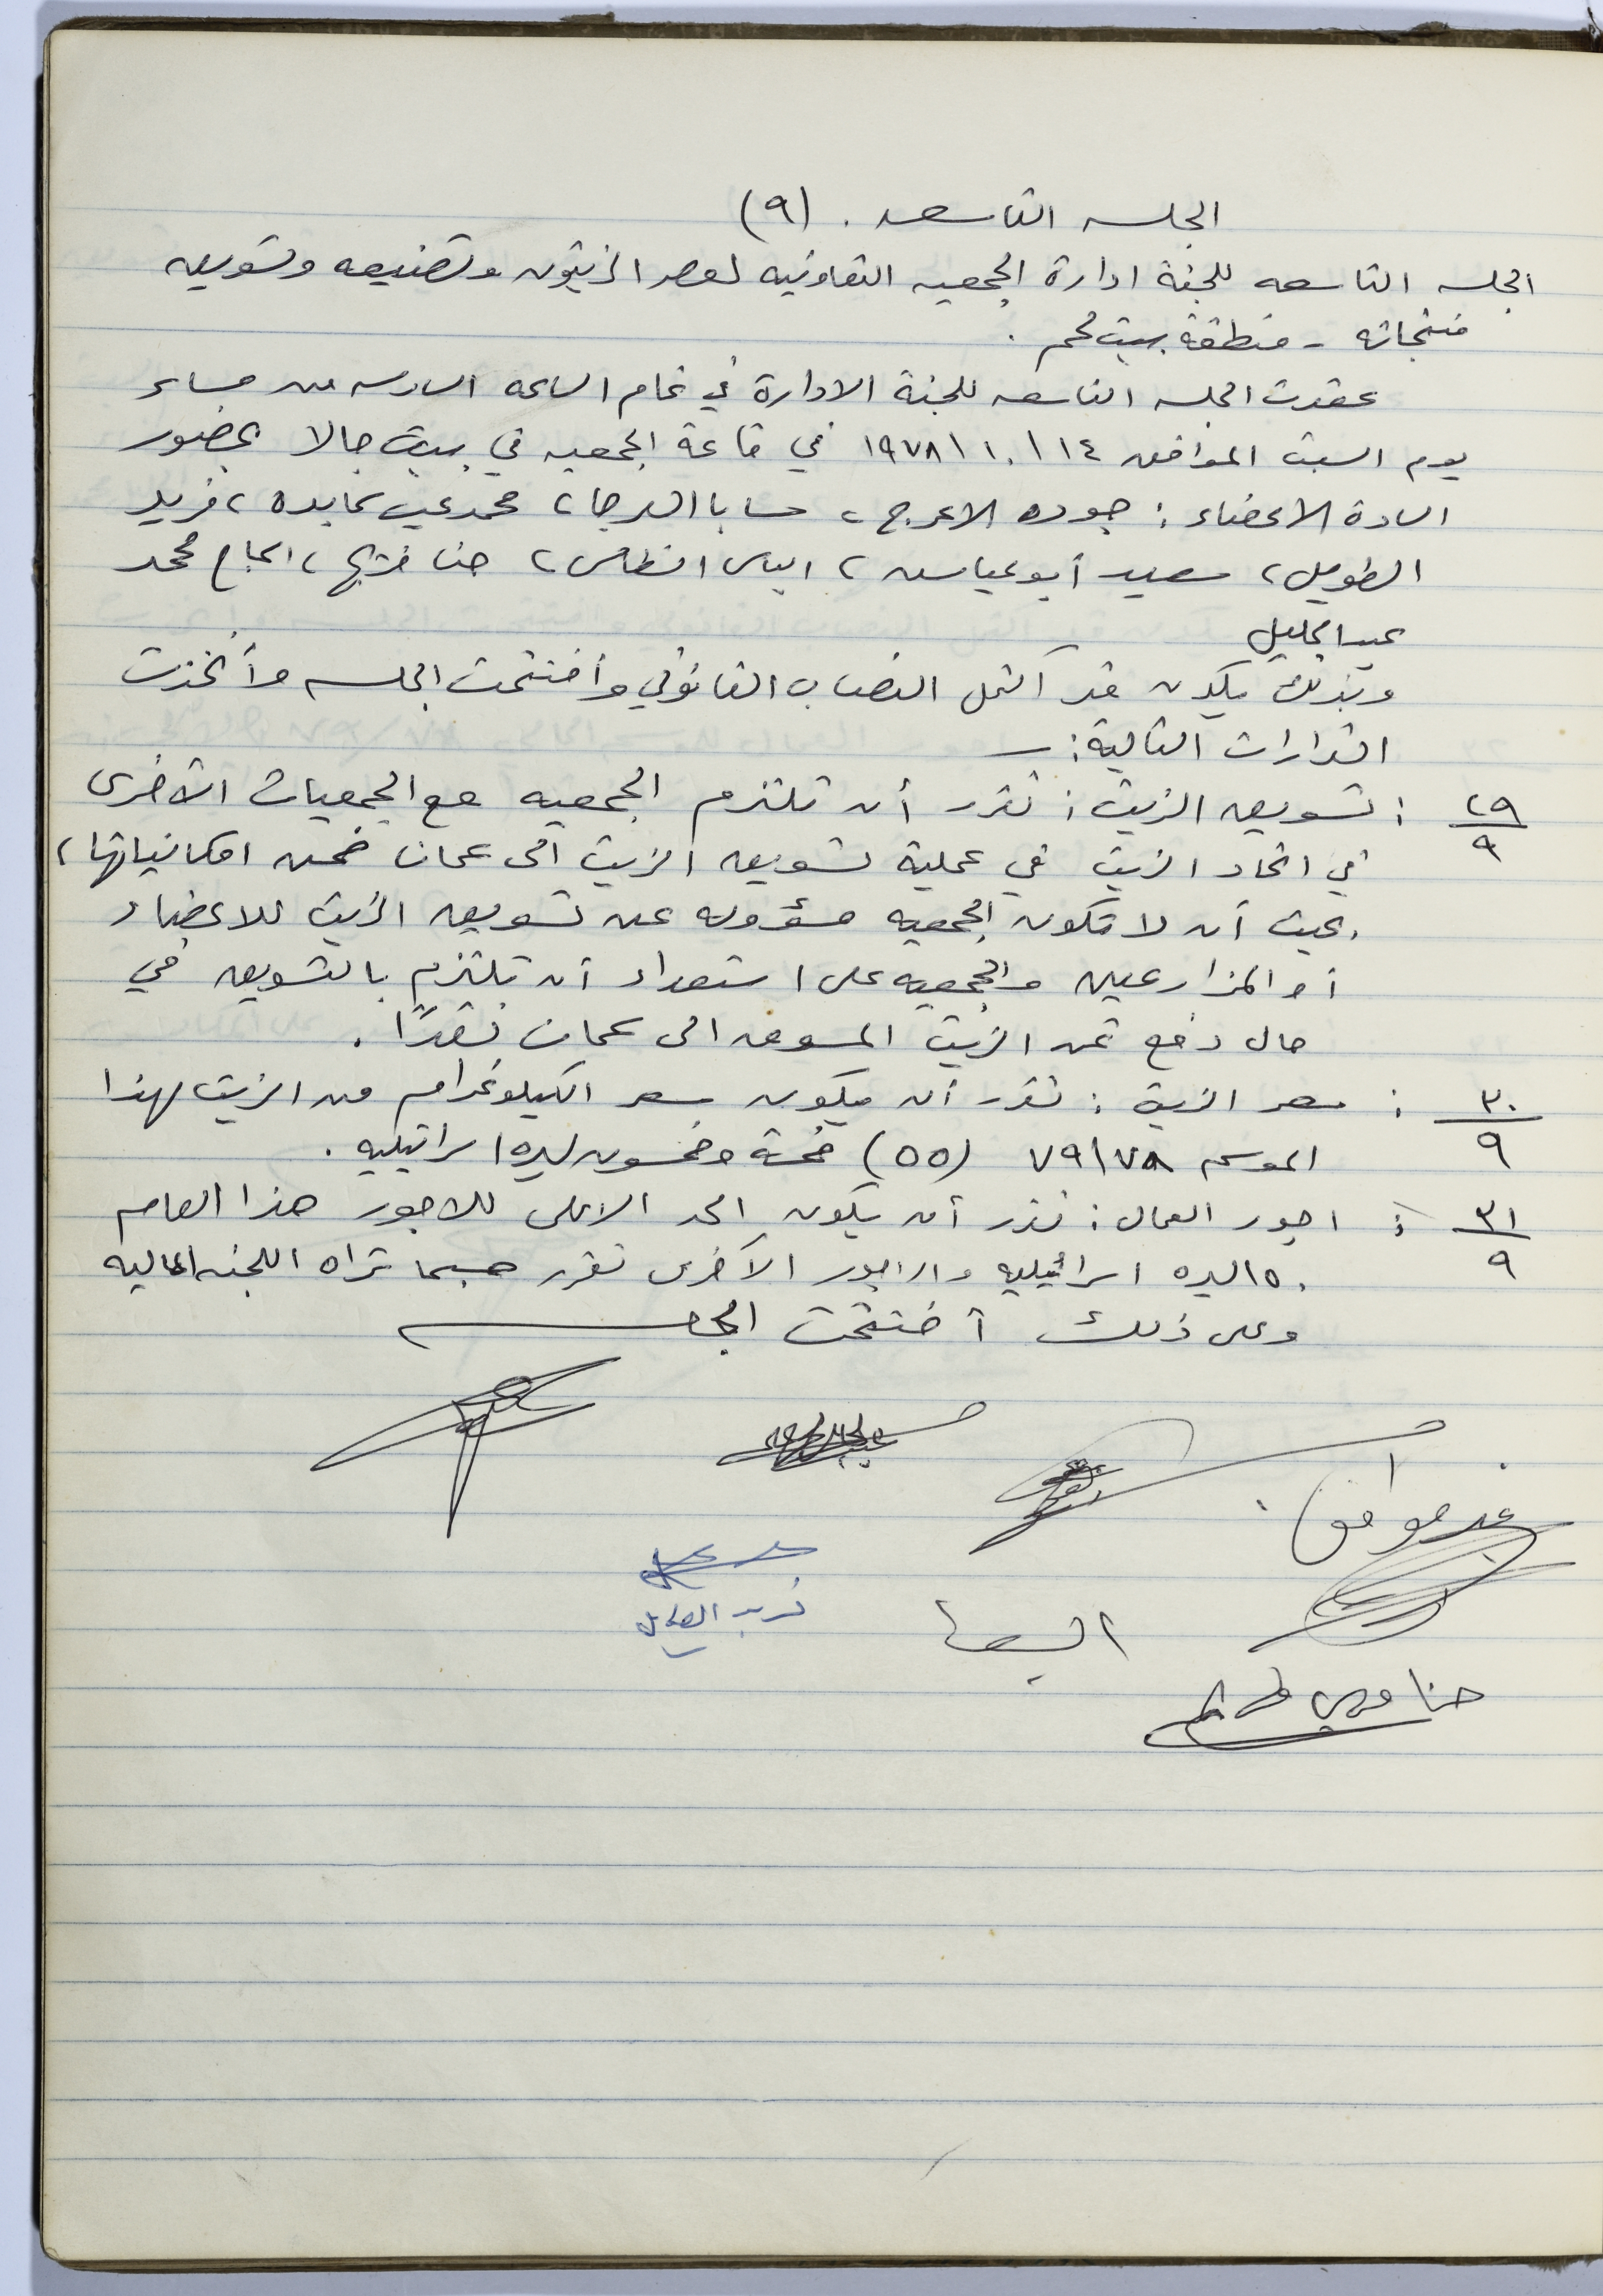 الجلسه التاسعه . (٩)
الجلسه التاسعه للجنة ادارة الجمعيه التعاونيه لعصر الزيتون وتصنيعه وتسويق
منتجاته - منطقة بيت لحم .
عقدت الجلسه التاسعه للجنة الادارة في تمام الساعه السادسه من مساء
يوم السبت الموافق ١٤ / ١٠ / ١٩٧٨ في قاعة الجمعيه في بيت جالا بحضور
السادة الاعضاء : جوده الاعرج ، سابا العرجا ، محمد عيد عابده ، فريد
الطويل ، سعيد أبو عياش ، الياس ، حنا فريج ، الحاج محمد
عبد الجليل
وبذلك يكون قد أكتمل النصاب القانوني وأفتتحت الجلسه وأتخذت
القرارات التالية : ــ
٢٩/٩ : تسويق الزيت : تقرر أن تلتزم الجمعيه مع الجمعيات الأخرى
في اتحاد الزيت في عملية تسويق الزيت الى عمان ضمن امكانياتها ،
بحيث أن لا تكون الجمعيه مسؤوله عن تسويق الزيت للاعضاء
أو المزارعين والجمعيه على استعداد أن تلتزم بالتسويق في
حال دفع ثمن الزيت المسوق الى عمان نقدًا .
٣٠/٩ : سعر الزيت : تقرر أن يكون سعر الكيلوغرام من الزيت لهذا
الموسم ٧٩/٧٨ (٥٥) خمسة وخمسون ليره اسرائيليه .
٣١/٩ : اجور العمال : تقرر أن يكون الحد الاعلى للاجور هذا العام
١٥٠ ليره اسرائيليه والاجور الأخرى تقرر حسبما تراه اللجنه الماليه
وعلى ذلك أختتمت الجلسه
غير موافق
فريد الطويل
حنا فريج